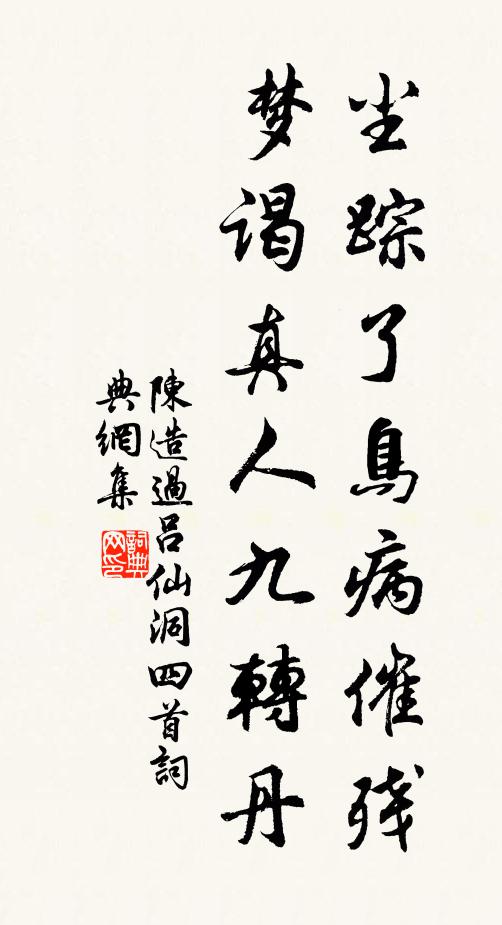 尘踪了鳥病催残
梦谒真人九轉丹
陳造過呂仙洞四首詞
典網集
詞典网印